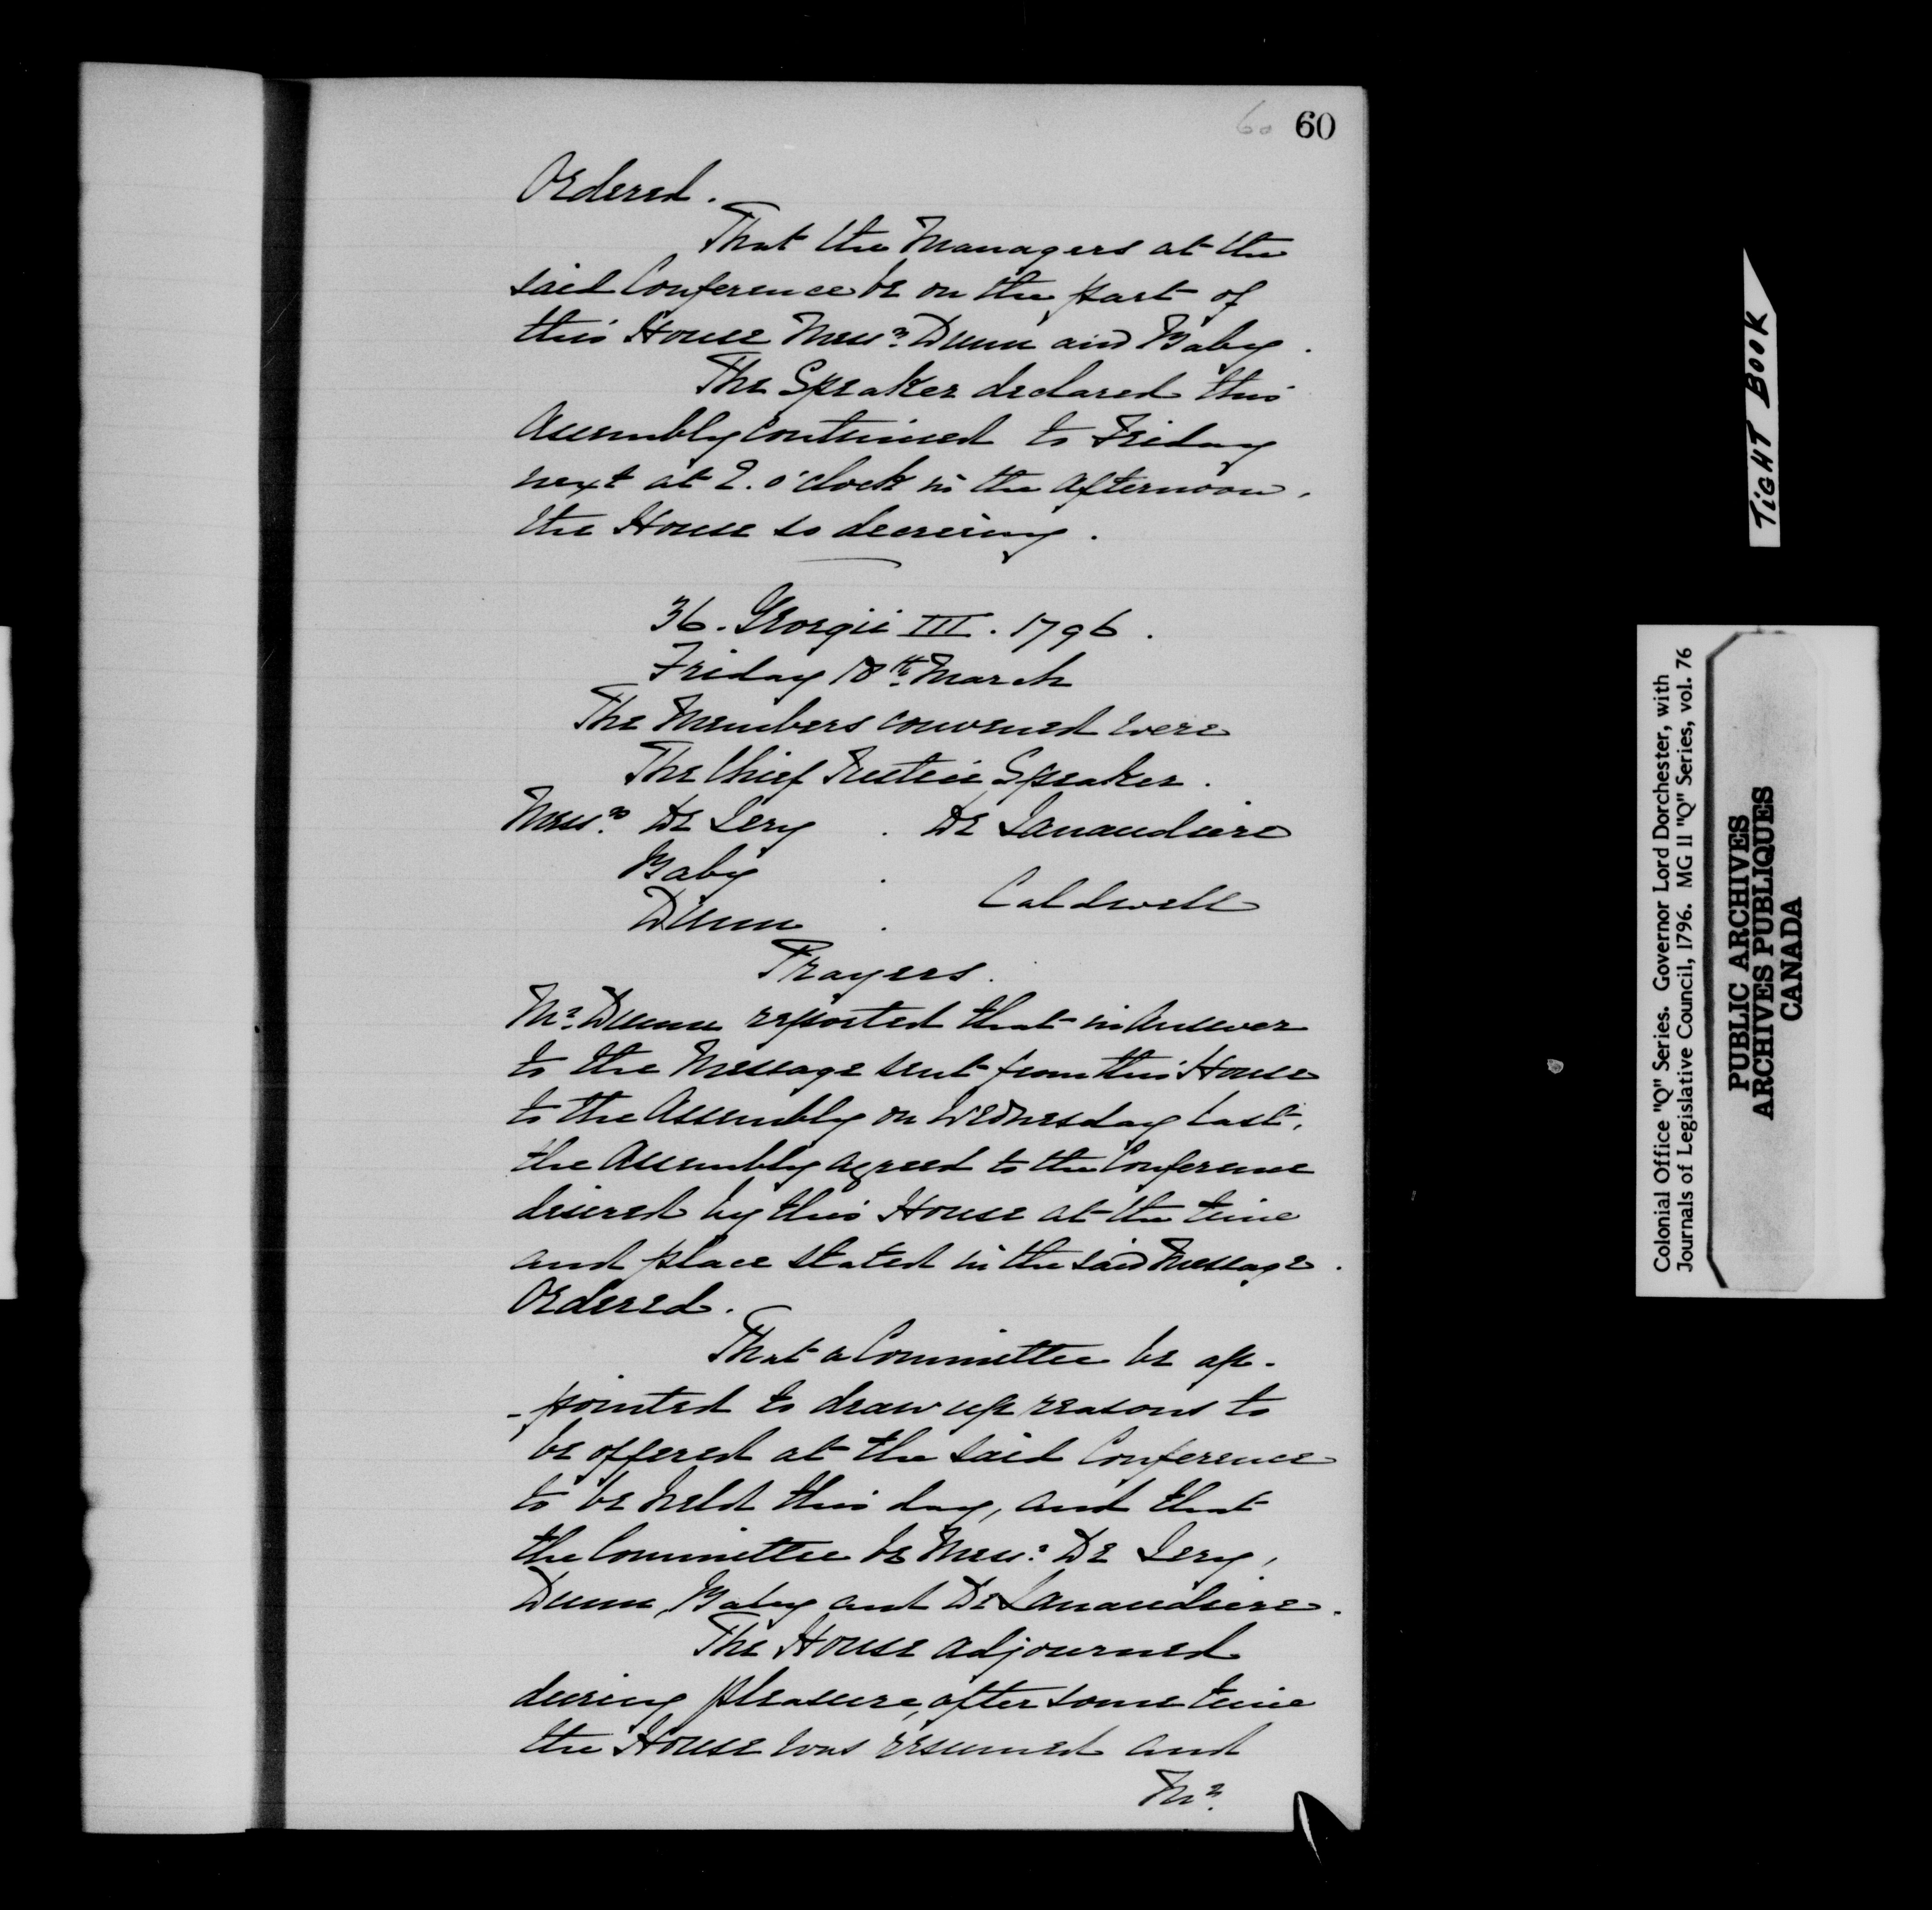 60 60
Ordered.
That the Managers at the
said Conference be on the part of
this House Mess.rs Dunn and Baby.
The Speaker declared this
Assembly continued to Friday
next at 2. o'clock in the afternoon,
the House so decreeing.
36. Georgii III. 1796.
Friday 18th March
The Members convened were
The Chief Justice Speaker.
Mess.rs De Lery . De Lanaudiere
Baby .
Caldwell
Dunn .
Prayers.
Mr. Dunn reported that in Answer
to the Message sent from this House
to the Assembly on Wednesday last,
the Assembly agreed to the Conference
desired by this House at the time
and place stated in the said Message.
Ordered.
That a Committee be ap-
-pointed to draw up reasons to
be offered at the said Conference
to be held this day, and that
the Committee be Mess.rs De Lery,
Dunn, Baby and De Lanaudiere.
The House adjourned
during pleasure, after some time
the House was resumed and
Mr.
TiGHT BOOK
Colonial Office "Q" Series. Governor Lord Dorchester, with
Journals of Legislative Council, 1796. MG 11 "Q" Series, vol. 76
PUBLIC ARCHIVES
ARCHIVES PUBLIQUES
CANADA